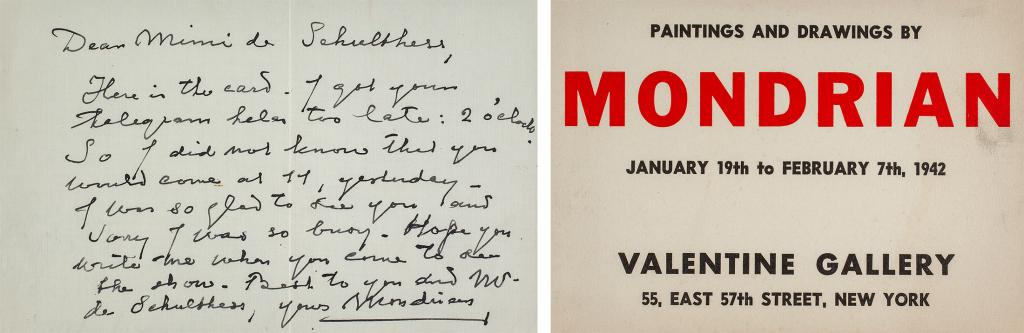 Dear Mimi de Schulthess,
Here is the card. I got your
telegram too late: 2 o'clock.
So I did not know that you
would come at 11, yesterday.
I was so glad to see you and
sorry I was so busy. Hope you
write me when you come to see
the show. Best to you and Mr.
de Schulthess, yours Mondrian
PAINTINGS AND DRAWINGS BY
MONDRIAN
JANUARY 19th to FEBRUARY 7th, 1942
VALENTINE GALLERY
55, EAST 57th STREET, NEW YORK